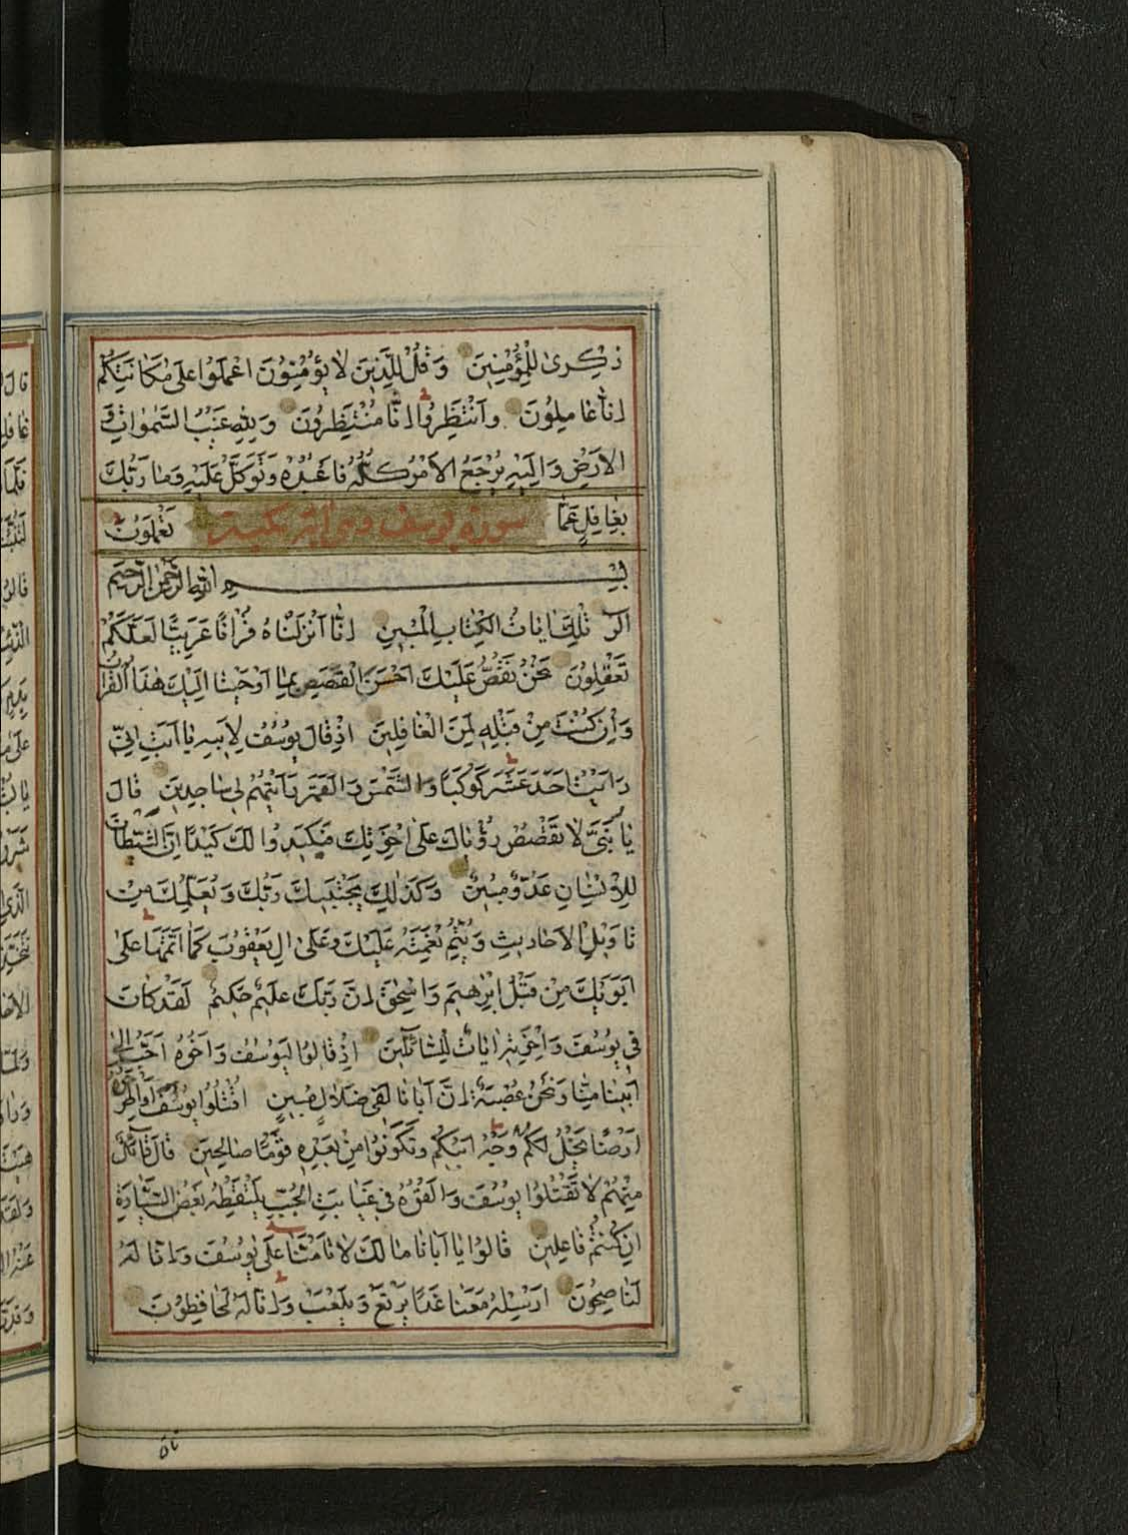 ذِكْرىٰ لِلْمُؤْمِنِينَ وَقُلْ لِلَّذِينَ لَا يُؤْمِنُونَ اعْمَلُوا عَلىٰ مَكَانَتِكُمْ
اِنَّا عَامِلُونَ وَانْتَظِرُوا اِنَّا مُنْتَظِرُونَ وَلِلّٰهِ غَيْبُ السَّمٰوَاتِ وَ
الْاَرْضِ وَاِلَيْهِ يُرْجَعُ الْاَمْرُ كُلُّهُ فَاعْبُدْهُ وَتَوَكَّلْ عَلَيْهِ وَمَا رَبُّكَ
بِغَافِلٍ عَمَّا تَعْمَلُونَ
سورة يوسف
بِسْمِ اللّٰهِ الرَّحْمٰنِ الرَّحِيمِ
الٓرٰ تِلْكَ اٰيَاتُ الْكِتَابِ الْمُبِينِ اِنَّا اَنْزَلْنَاهُ قُرْاٰنًا عَرَبِيًّا لَعَلَّكُمْ
تَعْقِلُونَ نَحْنُ نَقُصُّ عَلَيْكَ اَحْسَنَ الْقَصَصِ بِمَا اَوْحَيْنَا اِلَيْكَ هٰذَا الْقُرْاٰنَ
وَاِنْ كُنْتَ مِنْ قَبْلِهِ لَمِنَ الْغَافِلِينَ اِذْ قَالَ يُوسُفُ لِاَبِيهِ يَا اَبَتِ اِنِّي
رَاَيْتُ اَحَدَ عَشَرَ كَوْكَبًا وَالشَّمْسَ وَالْقَمَرَ رَاَيْتُهُمْ لِي سَاجِدِينَ قَالَ
يَا بُنَيَّ لَا تَقْصُصْ رُؤْيَاكَ عَلىٰ اِخْوَتِكَ فَيَكِيدُوا لَكَ كَيْدًا اِنَّ الشَّيْطَانَ
لِلْاِنْسَانِ عَدُوٌّ مُبِينٌ وَكَذٰلِكَ يَجْتَبِيكَ رَبُّكَ وَيُعَلِّمُكَ مِنْ
تَاْوِيلِ الْاَحَادِيثِ وَيُتِمُّ نِعْمَتَهُ عَلَيْكَ وَعَلىٰ اٰلِ يَعْقُوبَ كَمَا اَتَمَّهَا عَلىٰ
اَبَوَيْكَ مِنْ قَبْلُ اِبْرٰهِيمَ وَاِسْحٰقَ اِنَّ رَبَّكَ عَلِيمٌ حَكِيمٌ لَقَدْ كَانَ
فِي يُوسُفَ وَاِخْوَتِهِ اٰيَاتٌ لِلسَّائِلِينَ اِذْ قَالُوا لَيُوسُفُ وَاَخُوهُ اَحَبُّ اِلىٰ
اَبِينَا مِنَّا وَنَحْنُ عُصْبَةٌ اِنَّ اَبَانَا لَفِي ضَلَالٍ مُبِينٍ اقْتُلُوا يُوسُفَ اَوِ اطْرَحُوهُ
اَرْضًا يَخْلُ لَكُمْ وَجْهُ اَبِيكُمْ وَتَكُونُوا مِنْ بَعْدِهِ قَوْمًا صَالِحِينَ قَالَ قَائِلٌ
مِنْهُمْ لَا تَقْتُلُوا يُوسُفَ وَاَلْقُوهُ فِي غَيَابَتِ الْجُبِّ يَلْتَقِطْهُ بَعْضُ السَّيَّارَةِ
اِنْ كُنْتُمْ فَاعِلِينَ قَالُوا يَا اَبَانَا مَا لَكَ لَا تَاْمَنَّا عَلىٰ يُوسُفَ وَاِنَّا لَهُ
لَنَاصِحُونَ اَرْسِلْهُ مَعَنَا غَدًا يَرْتَعْ وَيَلْعَبْ وَاِنَّا لَهُ لَحَافِظُونَ